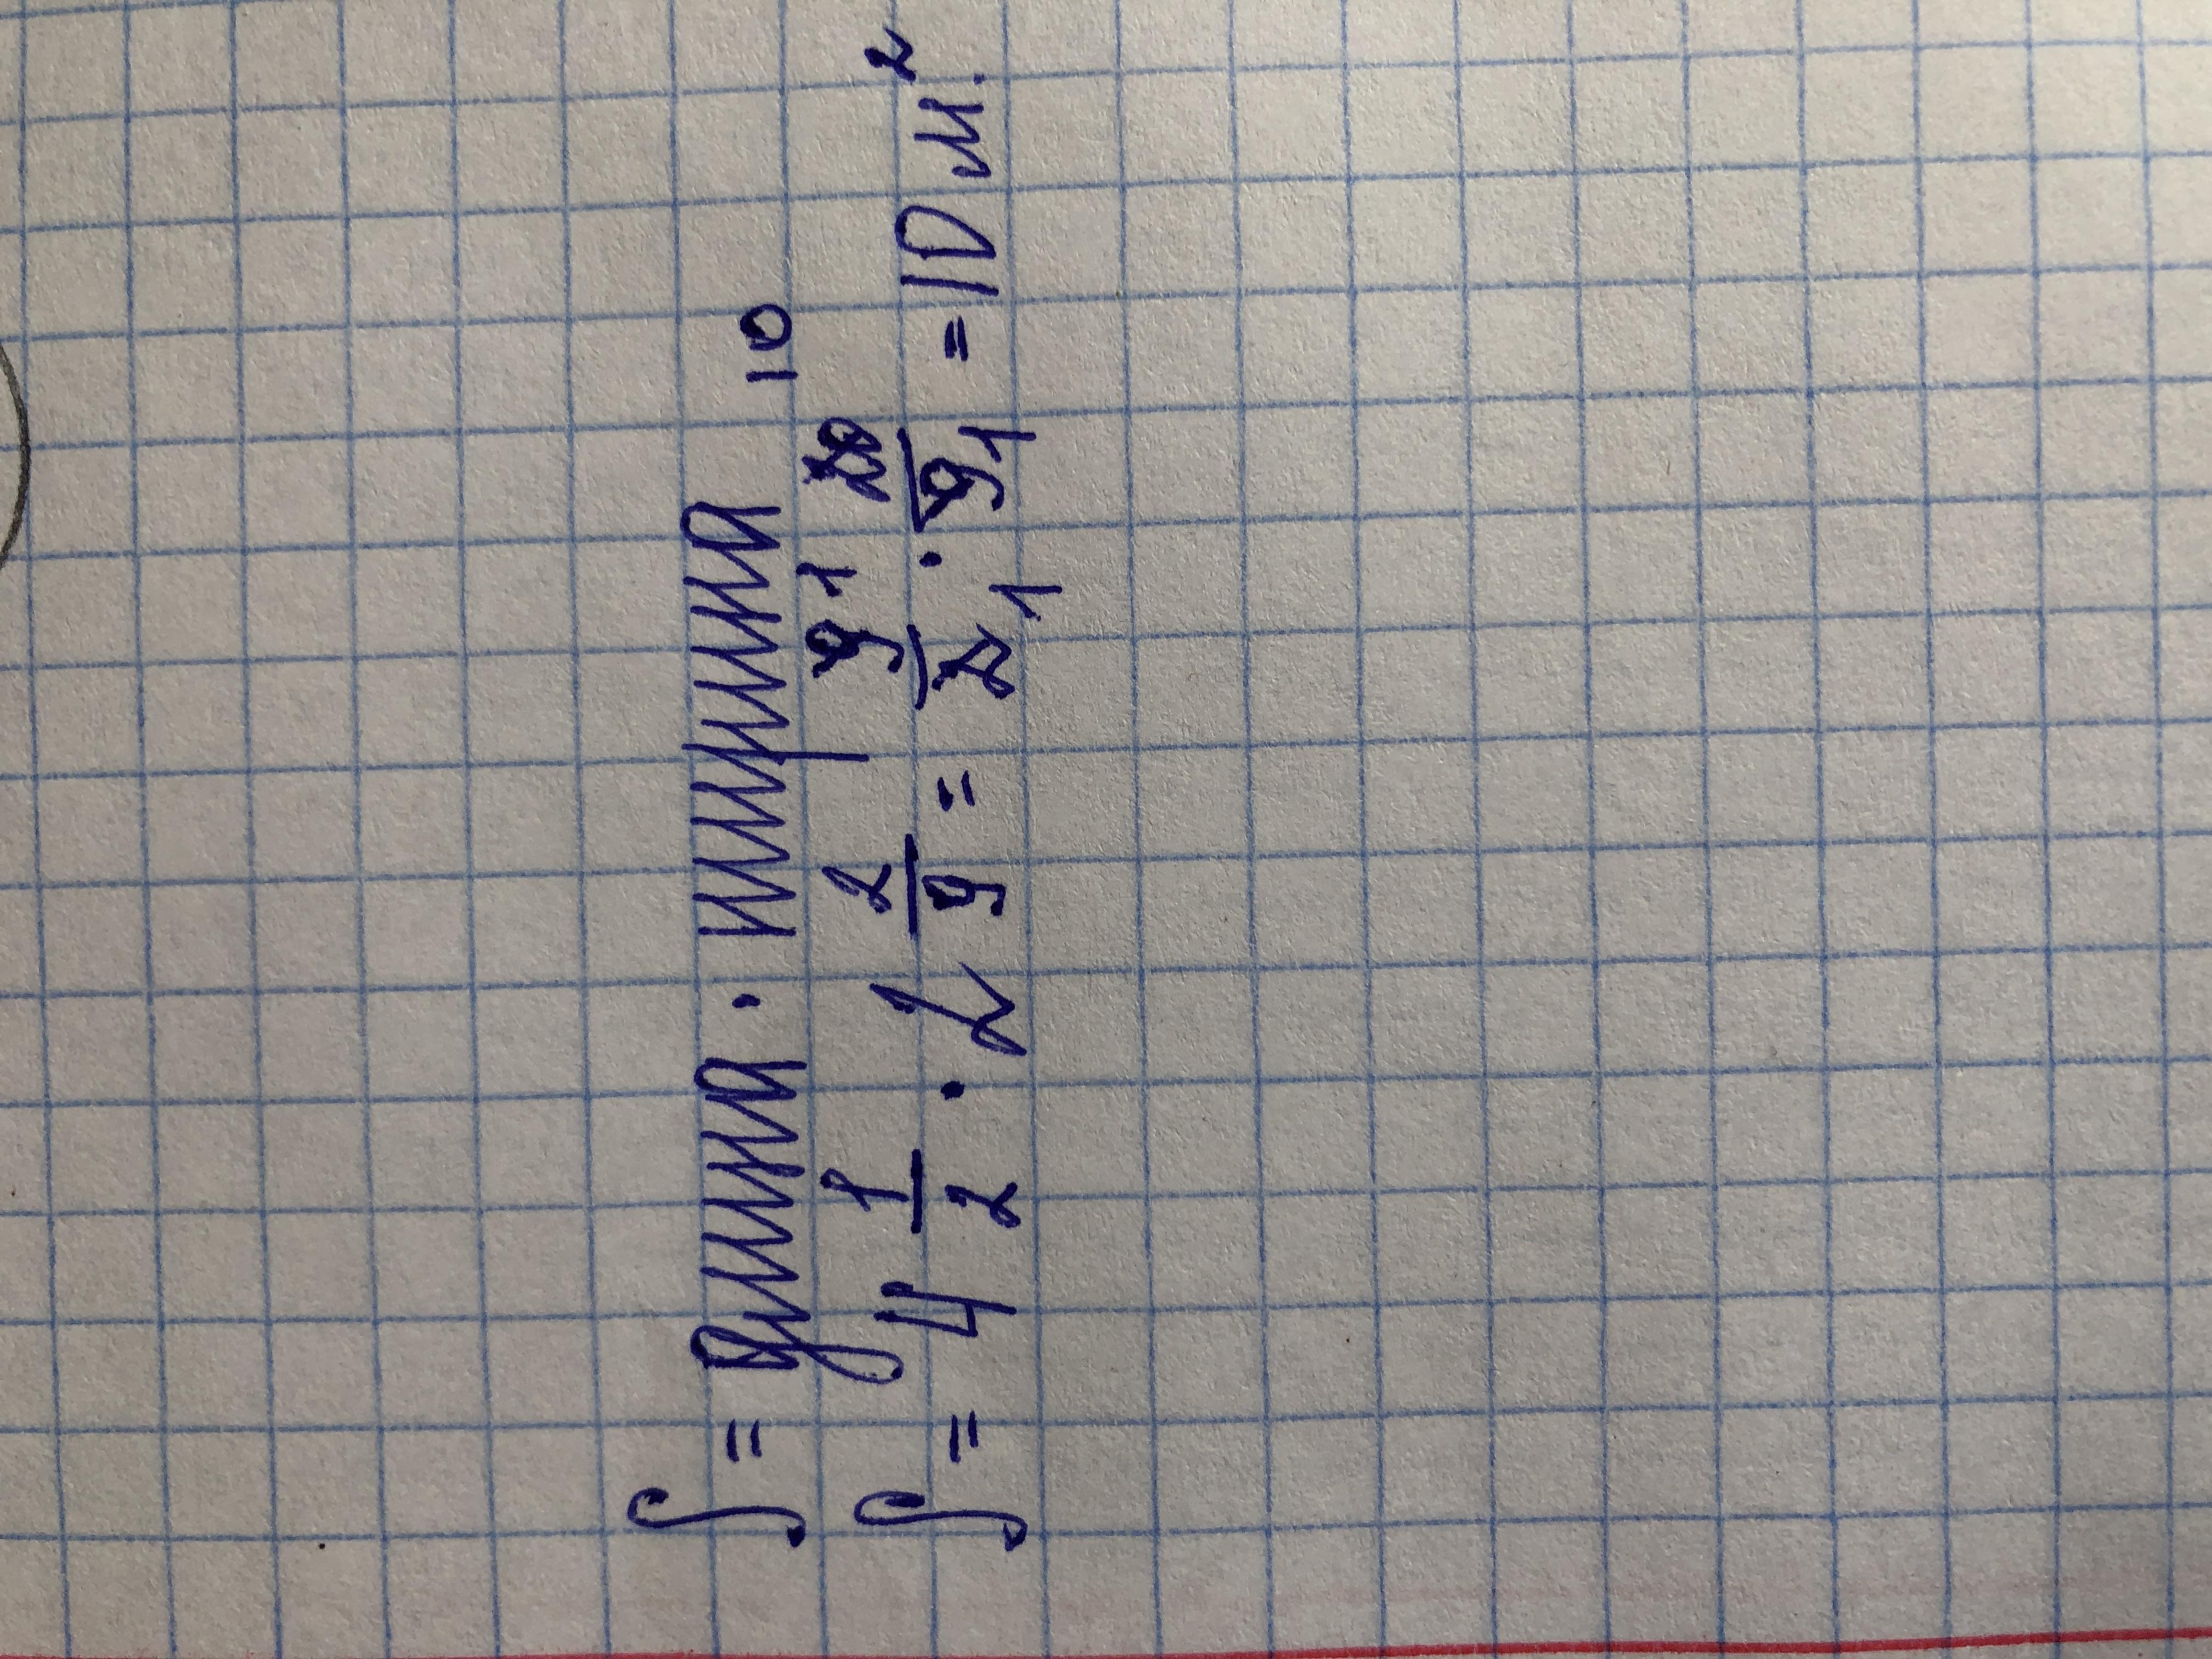 S = длина · ширина
S = 4 1/2 · 2 2/9 = 9 1/2 1 · 20 10/9 1 = 10 м².